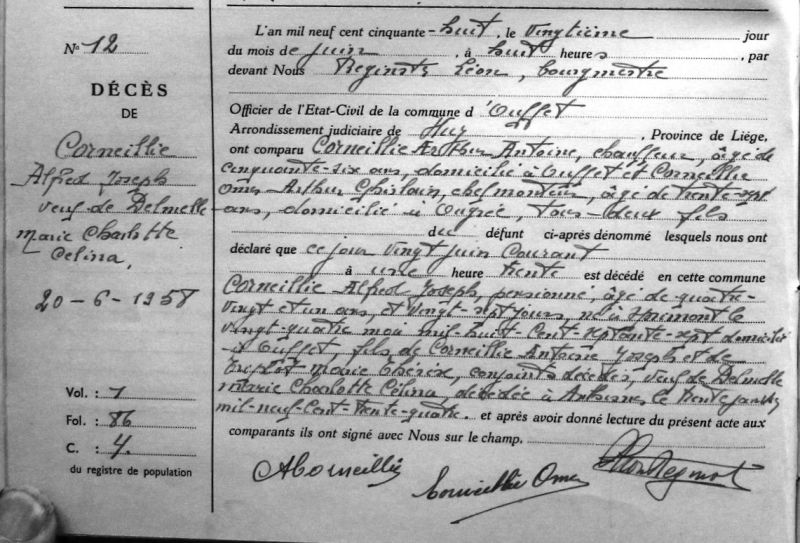 N° 12
DÉCÈS
DE
Corneillie
Alfred Joseph
veuf de Delmelle
Marie Charlotte
Celina,
20-6-1958
Vol. : 1
Fol. : 86
C. : 4.
du registre de population
L'an mil neuf cent cinquante-huit, le vingtième jour
du mois de juin, à huit heures, par
devant Nous Léon, bourgmestre
Officier de l'Etat-Civil de la commune d'Ouffet
Arrondissement judiciaire de Huy, Province de Liége,
ont comparu Corneillie Arthur Antoine, chauffeur, âgé de
cinquante-six ans, domicilié à Ouffet et Corneillie
Omer Arthur Ghislain, chef monteur, âgé de trente-sept
ans, domicilié à Ougrée, tous deux fils
du défunt ci-après dénommé lesquels nous ont
déclaré que ce jour vingt juin courant
à une heure trente est décédé en cette commune
Corneillie Alfred Joseph, pensionné, âgé de quatre-
vingt et un ans, et vingt-sept jours, né à le
vingt-quatre mai mil-huit-cent-septante-sept domicilié
à Ouffet, fils de Corneillie Antoine Joseph et de
Marie Thérèse, conjoints décédés, veuf de Delmelle
Marie Charlotte Célina, décédée à le trente janvier
mil-neuf-cent-trente-quatre. et après avoir donné lecture du présent acte aux
comparants ils ont signé avec Nous sur le champ.
ACorneillie
Corneillie Omer